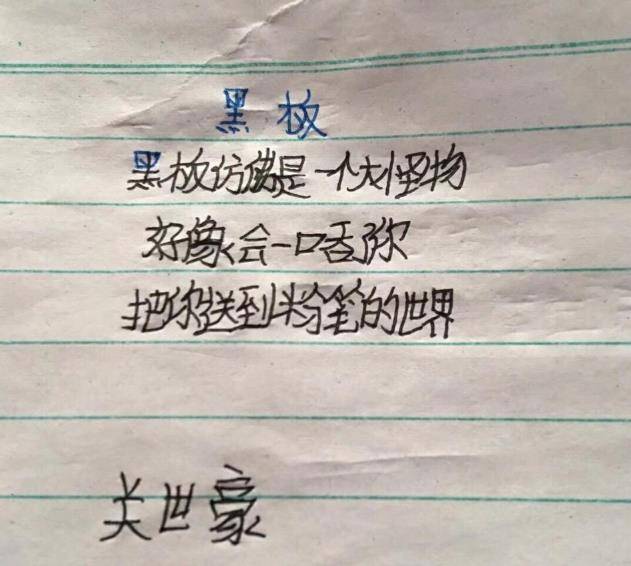 黑板
黑板仿佛是一个大怪物
好像会一口吞你
把你送到粉笔的世界
关世豪